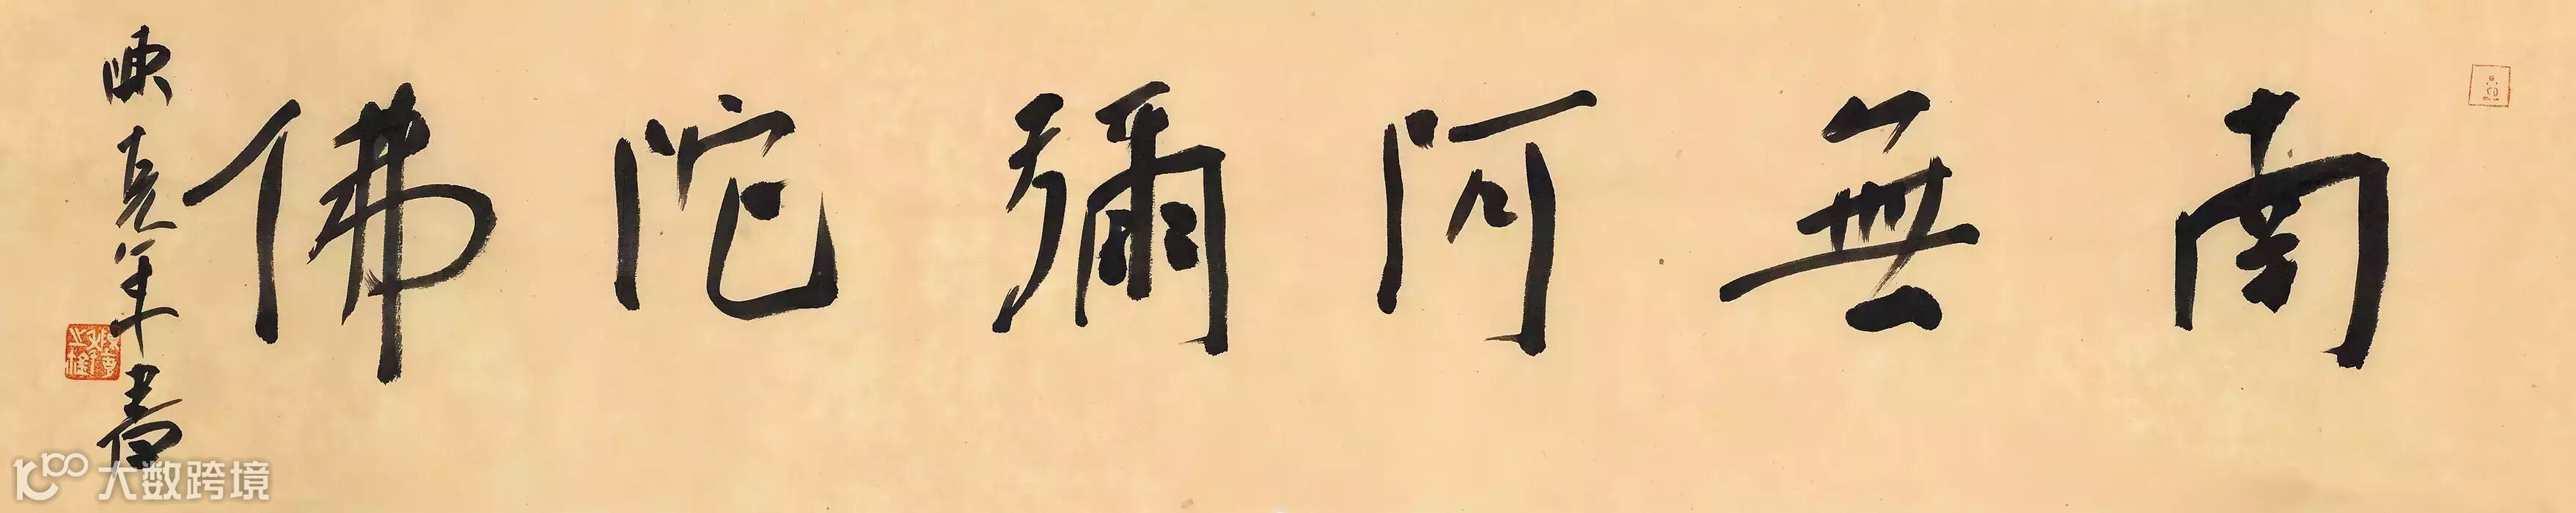 南無阿彌陀佛
陳克年書
大数跨境